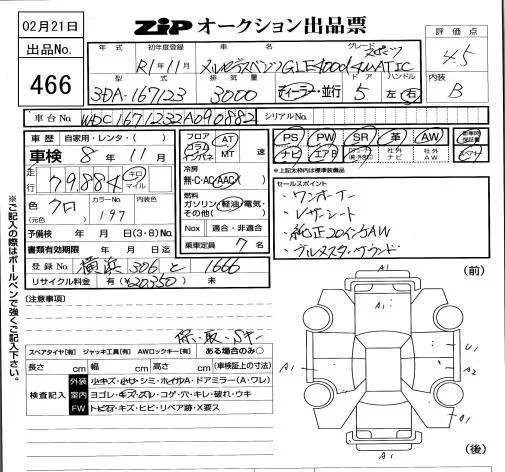 02月21日
ZiP オークション出品票
出品No.
466
評価点
4.5
内装
B
年式
初年度登録
車名
グレード
R1年11月
メルセデスベンツ GLE400d 4MATIC スポーツ
型式
排気量
ドア
ハンドル
3DA-167123
3000
ディーラー・並行
5
左 右
車台No.
WDC1671232A090882
シリアルNo.
車歴
自家用・レンタ・( )
車検 8年11月
走行
79,884
キロ
マイル
色
(元色)
クロ
カラーNo.
197
内装色
予備検 年 月 日(3・8)No.
書類有効期限 年 月 日迄
登録No. 横浜 306 と 1666
リサイクル料金 有(¥20,350) 未
フロア
コラム
インパネ
AT
MT
速
冷房
無・C・AC・AAC
燃料
ガソリン・軽油・電気・
その他( )
Nox 適合・非適合
乗車定員 7 名
PS PW SR 革 AW
ナビ エアB
社外
ナビ
社外
AW
※上記太枠内は標準装備品
セールスポイント
・ワンオーナー
・レザーシート
・純正20インチAW
・ブルメスターサウンド
[注意事項]
保・取・Sキー
スペアタイヤ[有] ジャッキ工具[有] AWロックキー[有] ある場合のみ〇
長さ cm 幅 cm 高さ cm (車検証上の寸法)
検査記入
外装 小キズ・小ヘコ・シミ・ホイルA・ドアミラー(A・ワレ)
室内 ヨゴレ・キズ・スレ・コゲ・穴・キレ・破れ・ウキ
FW トビ石・キズ・ヒビ・リペア跡・X要ス
※ご記入の際はボールペンで強くご記入下さい。
(前)
A1
A1
U1
A1
A2
A1
(後)